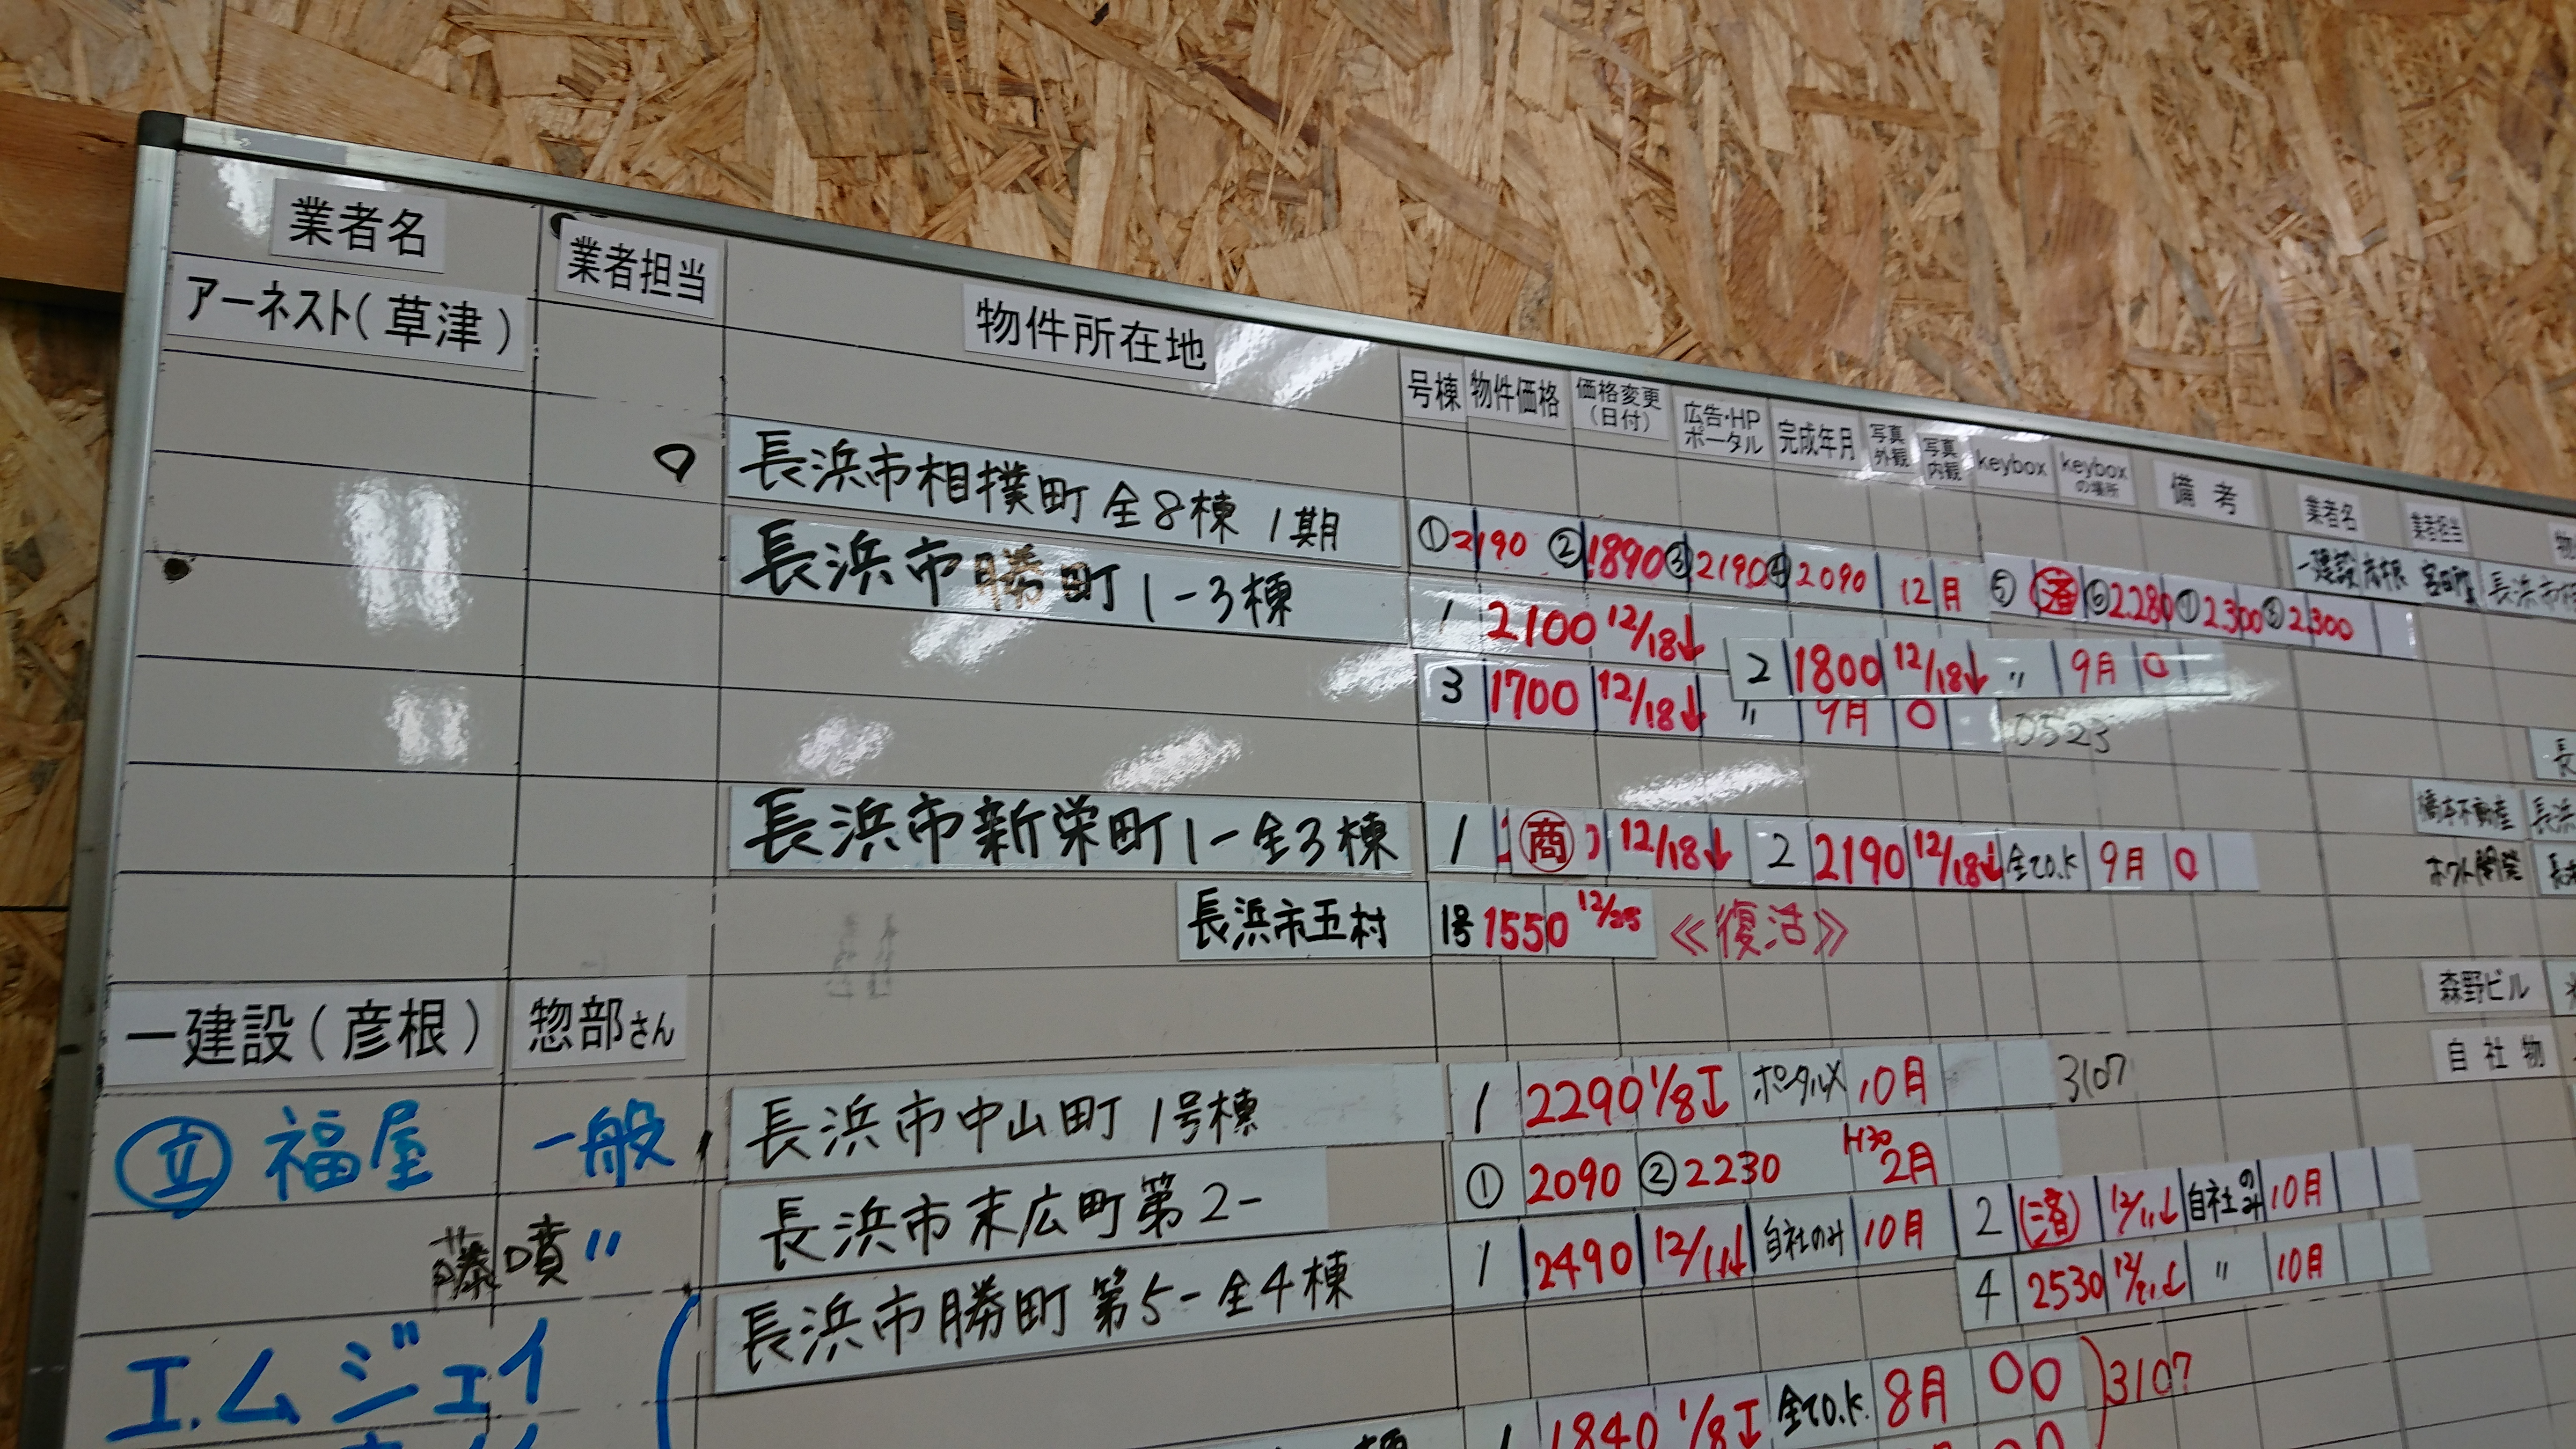 業者名 業者担当 物件所在地 号棟 物件価格 価格変更(日付) 広告・HPポータル 完成年月 写真外観 写真内観 keybox keyboxの場所 備考 業者名 業者担当 物
アーネスト(草津)
一建設 彦根 長浜市
長浜市相撲町 全8棟 1期 ①2190 ②1890 ③2190 ④2090 12月 ⑤ 済 ⑥2.280 ⑦2.300 ⑧2.300
長浜市勝町 1-3棟 1 2100 12/18↓ 2 1800 12/18↓ 〃 9月 0
3 1700 12/18↓ 〃 9月 0 0523
長
長浜市新栄町1-全3棟 1 商 12/18↓ 2 2190 12/18↓ 全てO.K 9月 0
橋本不動産 長浜
長浜市五村 1号 1550 12/25 《復活》
ホクト開発 長
森野ビル
一建設(彦根) 惣部さん
自社物
立 福屋 一般 長浜市中山町 1号棟 1 2290 1/8↓ ポータル× 10月 3107
藤 噴 〃 長浜市末広町第2- ① 2090 ②2230 H30 2月
長浜市勝町第5-全4棟 1 2490 12/11↓ 自社のみ 10月 2 済 12/11↓ 自社のみ 10月
4 2530 〃 10月
エムジェイ
1 1840 1/8↓ 全てO.K. 8月 00 3107